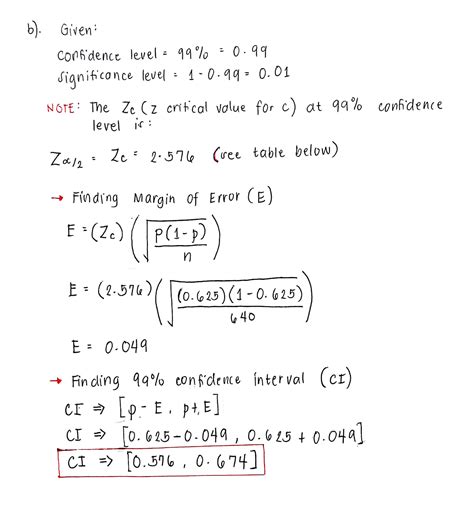 b). Given:
Confidence level = 99% = 0.99
Significance level = 1 - 0.99 = 0.01
NOTE: The Zc (z critical value for c) at 99% confidence
level is:
Zα/2 = Zc = 2.576 (see table below)
→ Finding Margin of Error (E)
E = (Zc) (√(p(1-p)/n))
E = (2.576) (√((0.625)(1-0.625)/640))
E = 0.049
→ Finding 99% confidence interval (CI)
CI ⇒ [p - E, p+E]
CI ⇒ [0.625-0.049, 0.625 + 0.049]
CI ⇒ [0.576, 0.674]